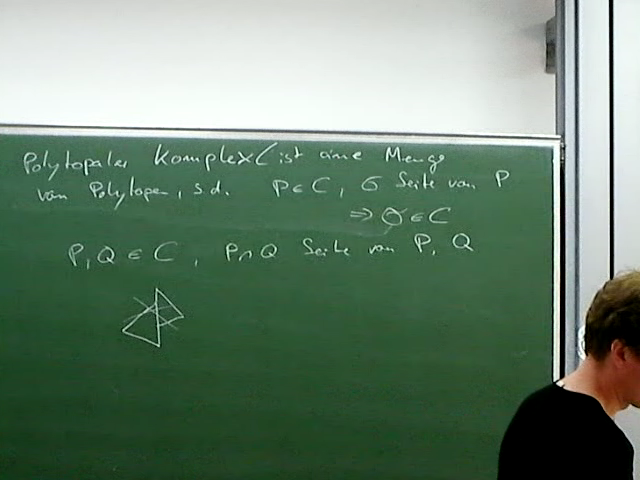 Polytopaler Komplex C ist eine Menge
von Polytopen, s.d. P ∈ C, σ Seite von P
⇒ σ ∈ C
P, Q ∈ C, P ∩ Q Seite von P, Q